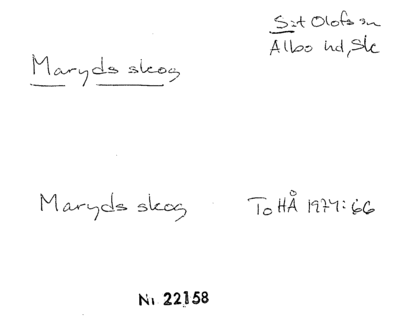 S:t Olofs sn
Albo hd, Sk
Maryds skog
Maryds skog To HÅ 1974: 66
Nr 22158